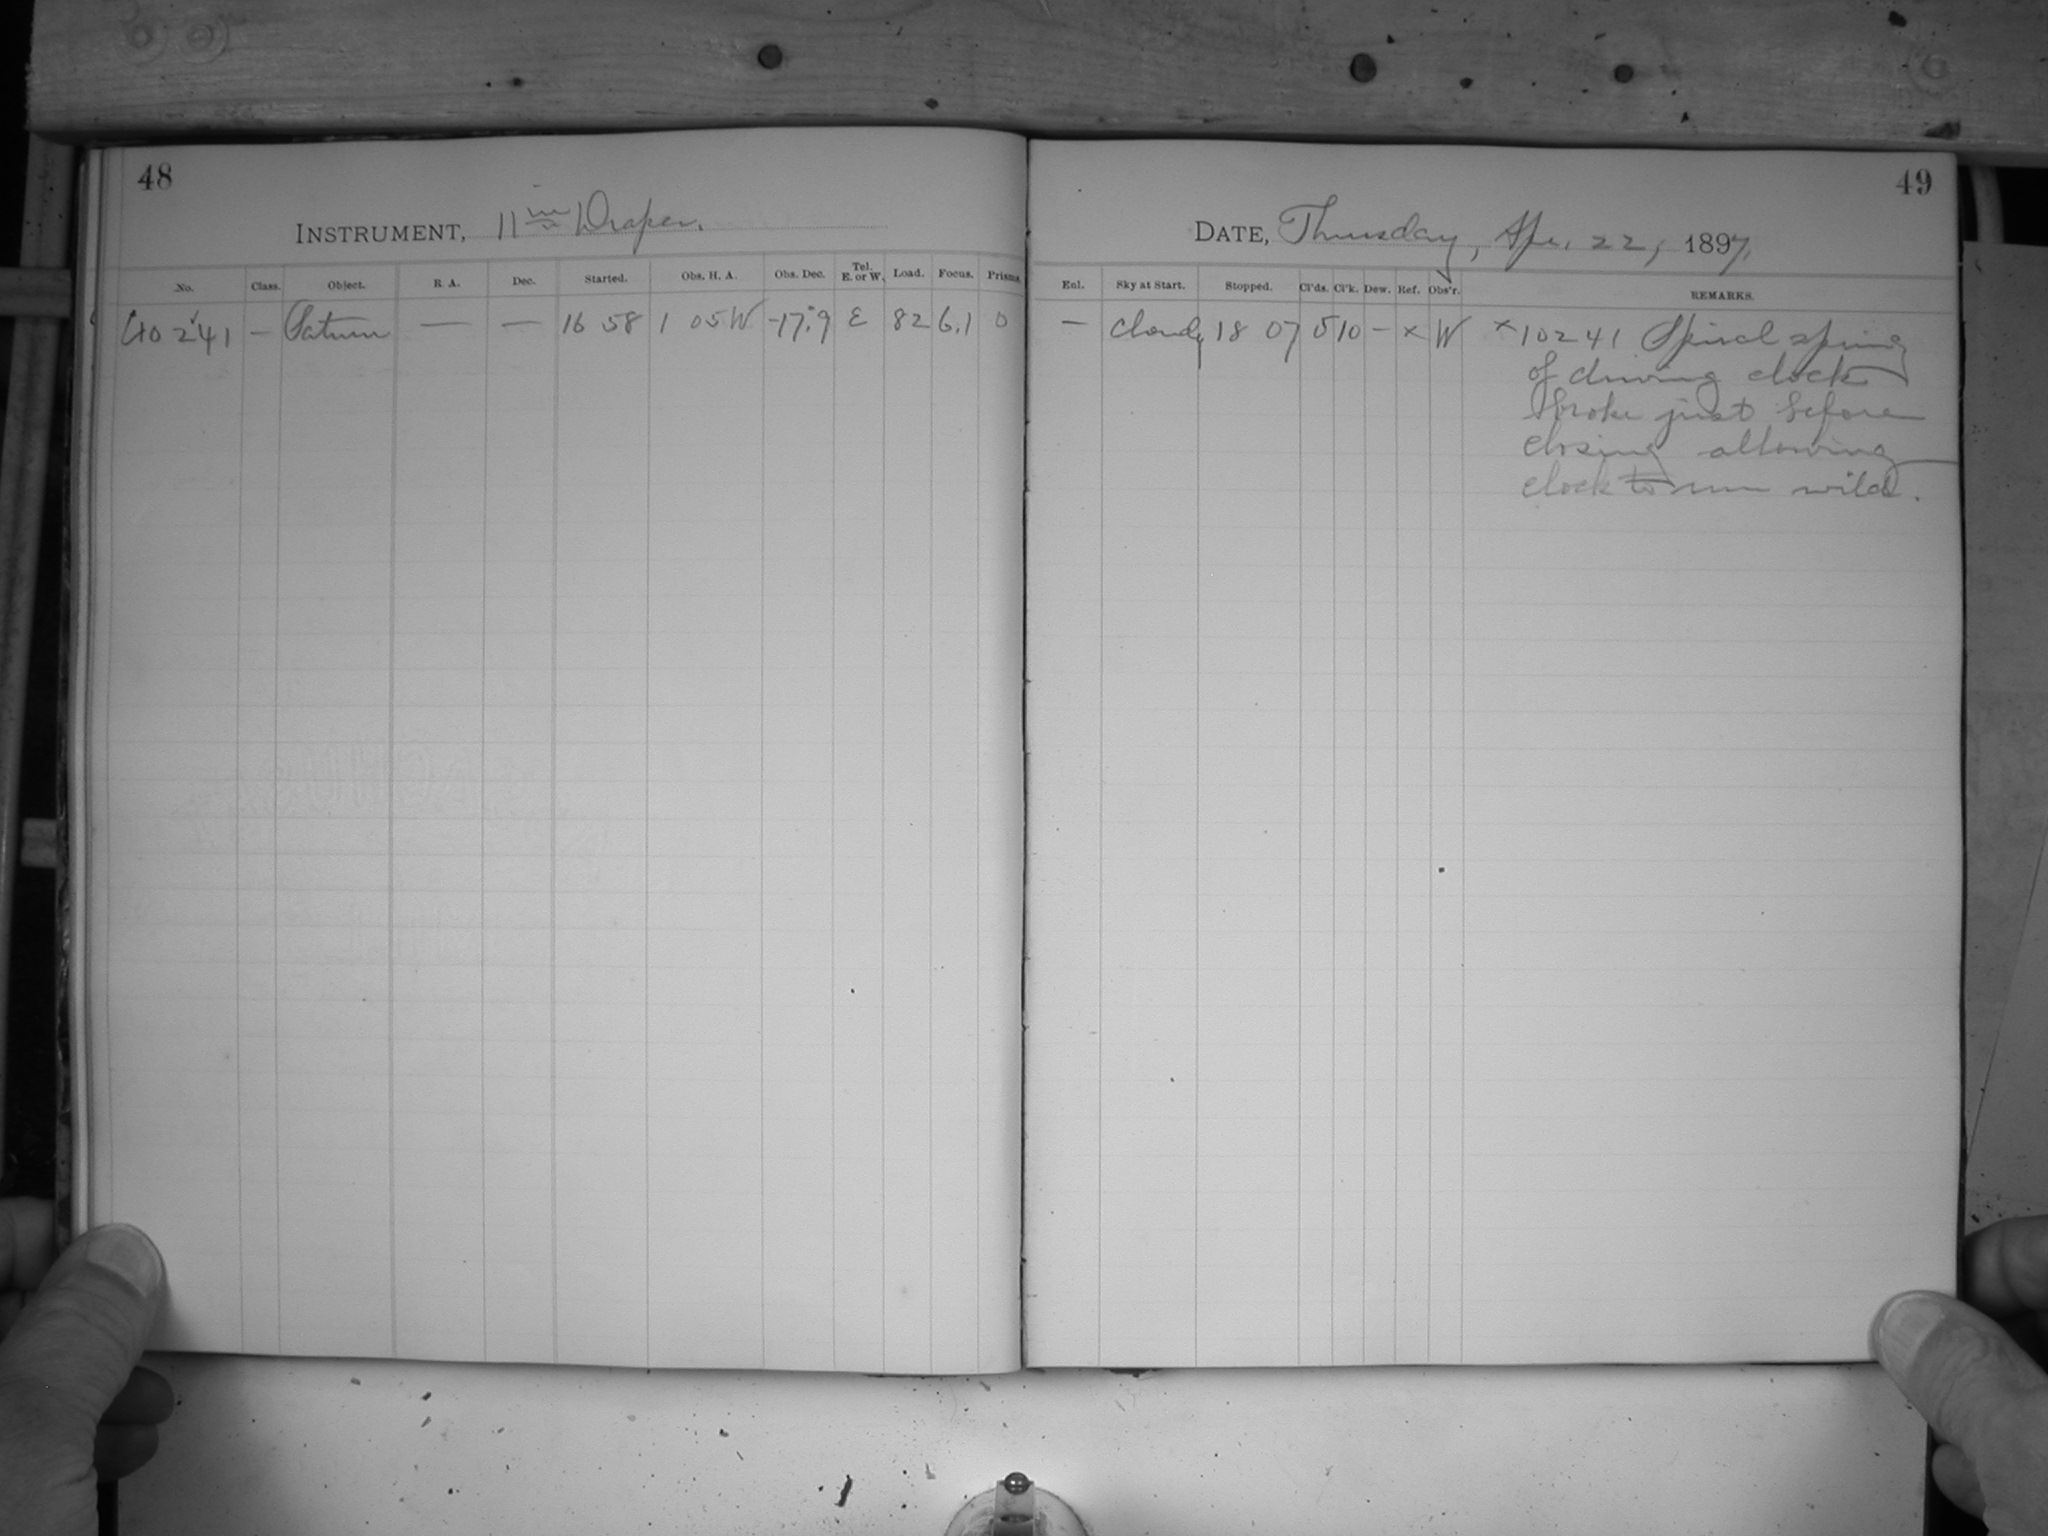 48
INSTRUMENT, 11 in Draper.
No. Class. Object. R. A. Dec. Started. Obs. H. A. Obs. Dec. Tel. E. or W. Load. Focus. Prisms.
10241 — Saturn — — 16 58 1 05 W -17.9 E 82 6.1 0
49
DATE, Thursday, Apr. 22, 1897.
Enl. Sky at Start. Stopped. Cl'ds. Cl'k. Dew. Ref. Obs'r. REMARKS.
— Cloudy 18 07 5 10 — x W x 10241 Spiral spring
of driving clock
broke just before
closing allowing
clock to run wild.